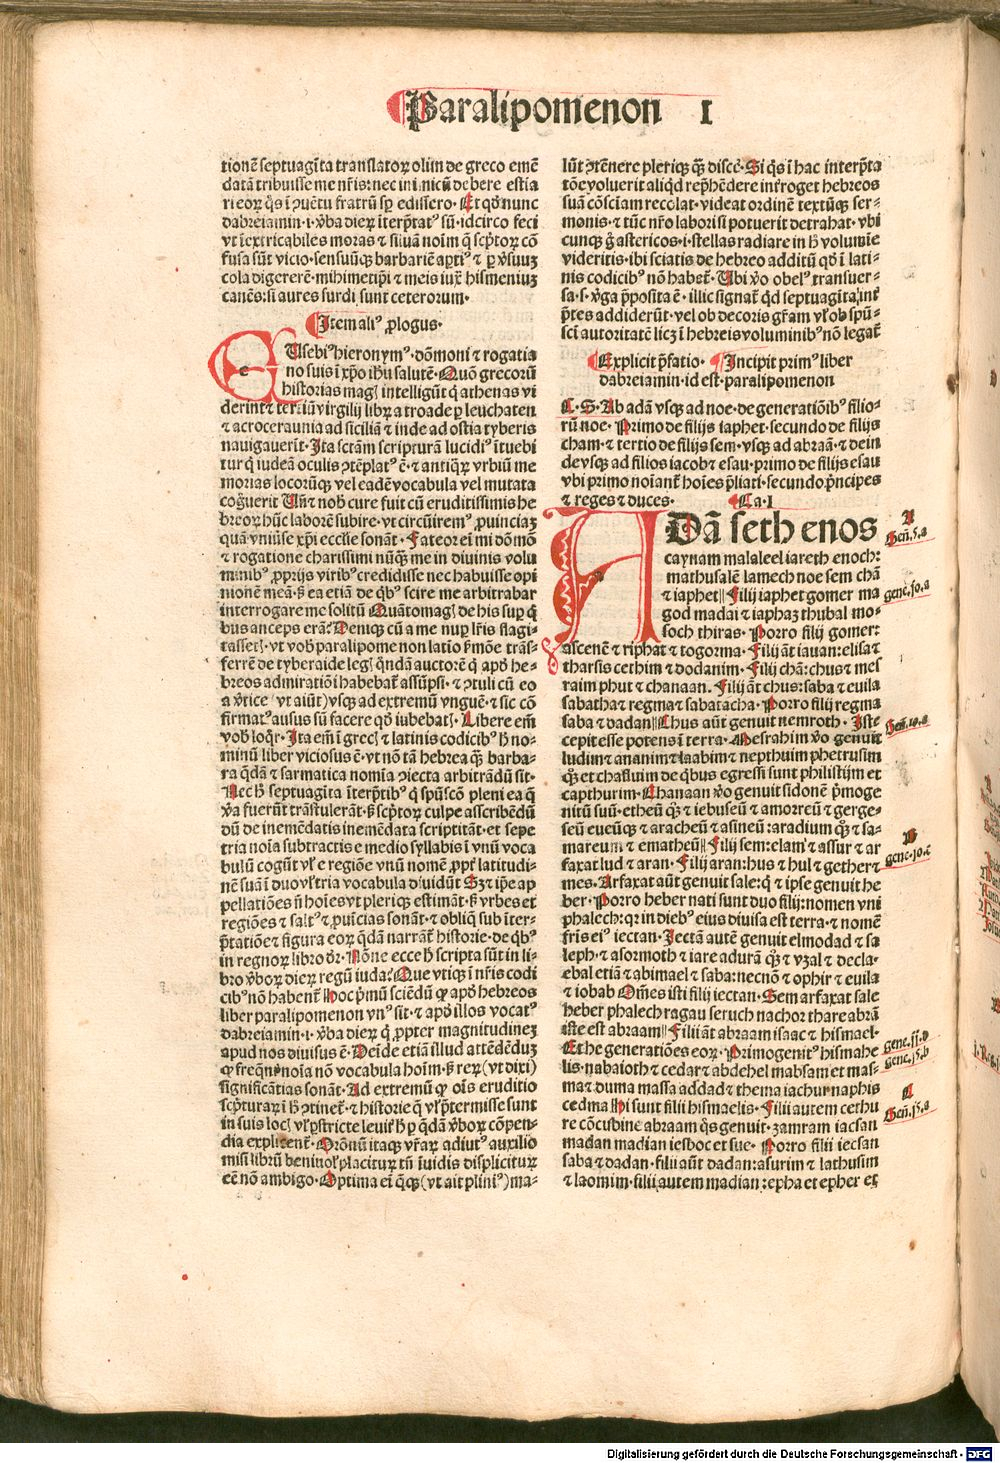 Paralipomenon I
tionē septuagīta translatoꝝ olim de greco emē
datā tribuisse me nr̄is: nec inimicū debere estia
rieorꝝ q̄s ī ꝯuētu fratrū sꝑ edissero. Et qd̄ nunc
dabreiamin .i. v̄ba dieꝝ īterp̄tatꝰ sū. idcirco feci
vt īextricabiles moras ⁊ siluā noīm q̄ scp̄torꝝ cō
fusa sūt vicio. sensuūqꝫ barbariē apti⁹ ⁊ ꝑ v̄suuꝫ
cola digererē. mihimetip̄i ⁊ meis iux̄ hismeniuꝫ
canēs: si aures surdi sunt ceterorum.
Item aliꝰ ꝓlogus.
EUsebiꝰ hieronymꝰ. dōmoni ⁊ rogatia
no suis ī xp̄o ih̄u salutē. Quō grecorū
historias magꝭ intelligūt q̄ athenas vi
derint ⁊ terciū virgilij librꝝ a troade ꝑ leuchaten
⁊ acroceraunia ad siciliā ⁊ inde ad ostia tyberis
nauigauerīt. Ita sctām scripturā lucidiꝰ ītuebi
tur q̄ iudeā oculis ꝯtēplatꝰ ē. ⁊ antiq̄rꝝ vrbiū me
morias locorūqꝫ vel eadē vocabula vel mutata
cog̃uerit Uñ ⁊ nob̄ cure fuit cū eruditissimis he
breoꝝ hūc laborē subire. vt circūiremꝰ ꝓuinciaꝫ
quā vniūse xp̄i eccl̄ie sonāt. Fateor ei mi dōmō
⁊ rogatione charissimi nūqꝫ me in diuinis volu
minibꝰ ꝓprijs viribꝰ credidisse nec habuisse opi
nionē meā. s̄ ea etiā de qb̄ꝰ scire me arbitrabar
interrogare me solitū Quātomagꝭ de his suꝑ q̄
bus anceps erā? Deniqꝫ cū a me nuꝑ lr̄is flagi-
tassetꝭ. vt vob̄ paralipomenon latio s̄mōe trās-
ferrē de tyberaide legꝭ q̄ndā auctorē q̄ apd̄ he-
breos admiratiōi habebat̄ assūpsi. ⁊ ꝯtuli cū eo
a v̄tice (vt aiūt) vsqꝫ ad extremū vnguē. ⁊ sic cō
firmatꝰ ausus sū facere qd̄ iubebatꝭ. Libere em̄
vob̄ loq̄r. Ita em̄ ī grecꝭ ⁊ latinis codicibꝰ h̄ no-
minū liber viciosus ē. vt nō tā hebrea q̄ꝫ barba-
ra q̄dā ⁊ sarmatica nomīa ꝯiecta arbitrādū sit.
Nec h̄ septuagīta īterp̄tibꝰ q̄ spūscō pleni ea q̄
v̄a fuerūt trāstulerāt. s̄ scp̄torꝝ culpe ascribēdū
dū de inemēdatis inemēdata scriptitāt. et sepe
tria noīa subtractis e medio syllabis ī vnū voca
bulū cogūt vl̄ e regiōe vnū nomē ꝓpt̄ latitudi-
nē suā ī duo vl̄ tria vocabula diuidūt Sꝫ ⁊ ip̄e ap
pellatiōes nō hoīes vt pleriqꝫ estimāt. s̄ vrbes et
regiōes ⁊ saltꝰ ⁊ ꝓuīcias sonāt. ⁊ obliq̄ sub īter-
p̄tatiōe ⁊ figura eoꝝ q̄dā narrāt̄ historie. de qb̄ꝰ
in regnoꝝ libro dr̄. Nōne ecce h̄ scripta sūt in li-
bro v̄boꝝ dieꝝ regū iuda? Que vtiqꝫ ī nr̄is codi
cibꝰ nō habent̄ Hoc pͥmū sciēdū ꝙ apd̄ hebreos
liber paralipomenon vnꝰ sit. ⁊ apd̄ illos vocatꝰ
dabreiamin .i. v̄ba dieꝝ q̄ ꝓpter magnitudineꝫ
apud nos diuisus ē. Deīde etiā illud attēdēduꝫ
ꝙ freq̄n̄ noīa nō vocabula hoīm. s̄ reꝝ (vt dixi)
significātias sonāt. Ad extremū ꝙ oīs eruditio
scp̄turaꝝ ī h̄ ꝯtinet̄. ⁊ historie q̄ vl̄ p̄termisse sunt
in suis locꝭ vl̄ p̄stricte leuit̄ h̄ ꝑ q̄dā v̄boꝝ cōpen-
dia explicent̄. Orōnū itaqꝫ vr̄aꝝ adiutꝰ auxilio
misi librū beniuolꝭ placituꝝ tn̄ īuidis displicituꝝ
eē nō ambigo. Optima ei q̄qꝫ (vt ait pliniꝰ) ma-
lūt ꝯtēnere pleriqꝫ q̄ꝫ discē. Si q̄s ī hac interp̄ta
tōe voluerit aliq̄d rep̄hēdere int̄roget hebreos
suā cōsciam recolat. videat ordinē textūqꝫ ser-
monis. ⁊ tūc nr̄o labori si potuerit detrahat. vbi
cunqꝫ g̊ astericos .i. stellas radiare in h̄ volumīe
videritis. ibi sciatis de hebreo additū qd̄ ī lati-
nis codicibꝰ nō habet̄. Ubi v̄o obelꝰ transuer-
sa .s. v̄ga p̄posita ē. illic signat̄ q̄d septuagīta īnt̄
p̄tes addiderūt. vel ob decoris gr̄am vl̄ ob spū-
sci autoritatē licꝫ ī hebreis voluminibꝰ nō legat̄
Explicit p̄fatio. Incipit primꝰ liber
dabreiamin. id est. paralipomenon
C. S. Ab adā vsqꝫ ad noe. de generatiōibꝰ filio-
rū noe. Primo de filijs iaphet. secundo de filijs
cham. ⁊ tertio de filijs sem. vsqꝫ ad abraā. ⁊ dein
de vsqꝫ ad filios iacob ⁊ esau. primo de filijs esau
vbi primo noīant̄ hoīes p̄liati. secundo p̄ncipes
⁊ reges ⁊ duces. Ca. I
ADā seth enos
caynam malaleel iareth enoch:
mathusalē lamech noe sem chā
⁊ iaphet Filij iaphet gomer ma
god madai ⁊ iaphaꝫ thubal mo-
soch thiras. Porro filij gomer:
ascenē ⁊ riphat ⁊ togorma. Filij āt iauan: elisa ⁊
tharsis cethim ⁊ dodanim. Filij chā: chus ⁊ mes
raim phut ⁊ chanaan. Filij āt chus: saba ⁊ euila
sabatha ⁊ regma ⁊ sabatacha. Porro filij regma
saba ⁊ dadan Chus aūt genuit nemroth. Iste
cepit esse potens ī terra. Mesrahim v̄o genuit
ludim ⁊ ananim ⁊ laabim ⁊ nepthuim phetrusim
qꝫ̄ et chasluim de qb̄us egressi sunt philistijm et
capthurim. Chanaan v̄o genuit sidonē p̄moge
nitū suū. etheū qꝫ̄ ⁊ iebuseū ⁊ amorreū ⁊ gerge-
seū eueūqꝫ ⁊ aracheū ⁊ asineū: aradium qꝫ̄ ⁊ sa-
mareum ⁊ ematheū Filij sem: elam ⁊ assur ⁊ ar
faxat lud ⁊ aran. Filij aran: hus ⁊ hul ⁊ gether ⁊
mes. Arfaxat aūt genuit sale: q̄ ⁊ ipse genuit he
ber. Porro heber nati sunt duo filij: nomen vni
phalech: qr in diebꝰ eius diuisa est terra. ⁊ nomē
fr̄is eiꝰ iectan. Iectā autē genuit elmodad ⁊ sa
leph. ⁊ asormoth ⁊ iare adurā qꝫ̄ ⁊ vzal ⁊ decla.
ebal etiā ⁊ abimael ⁊ saba: necnō ⁊ ophir ⁊ euila
⁊ iobab Om̄es isti filij iectan. Sem arfaxat sale
heber phalech ragau seruch nachor thare abrā
iste est abraam Filii āt abraam isaac ⁊ hismael.
Et he generatiōes eoꝝ. Primogenitꝰ hismahe
lis. nabaioth ⁊ cedar ⁊ abdehel mabsam et mas-
ma ⁊ duma massa addad ⁊ thema iachur naphis
cedma Hi sunt filii hismaelis. Filii autem cethu
re cōcubine abraam q̄s genuit. zamram iacsan
madan madian iesboc et sue. Porro filii iecsan
saba ⁊ dadan. filii aūt dadan: asurim ⁊ lathusim
⁊ laomim. filij autem madian: epha et epher et
A
Geñ.5.a
genc.10.a
Geñ.10.a
B
genc.10.c
genc.15.b
C
Geñ.15.a
Digitalisierung gefördert durch die Deutsche Forschungsgemeinschaft - DFG